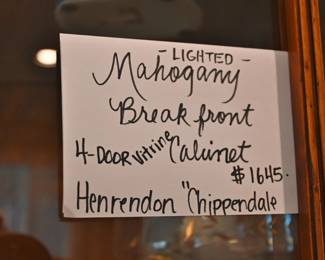 - LIGHTED -
Mahogany
Break front
4-DOOR Vitrine Cabinet
$1645.
Henrendon "Chippendale